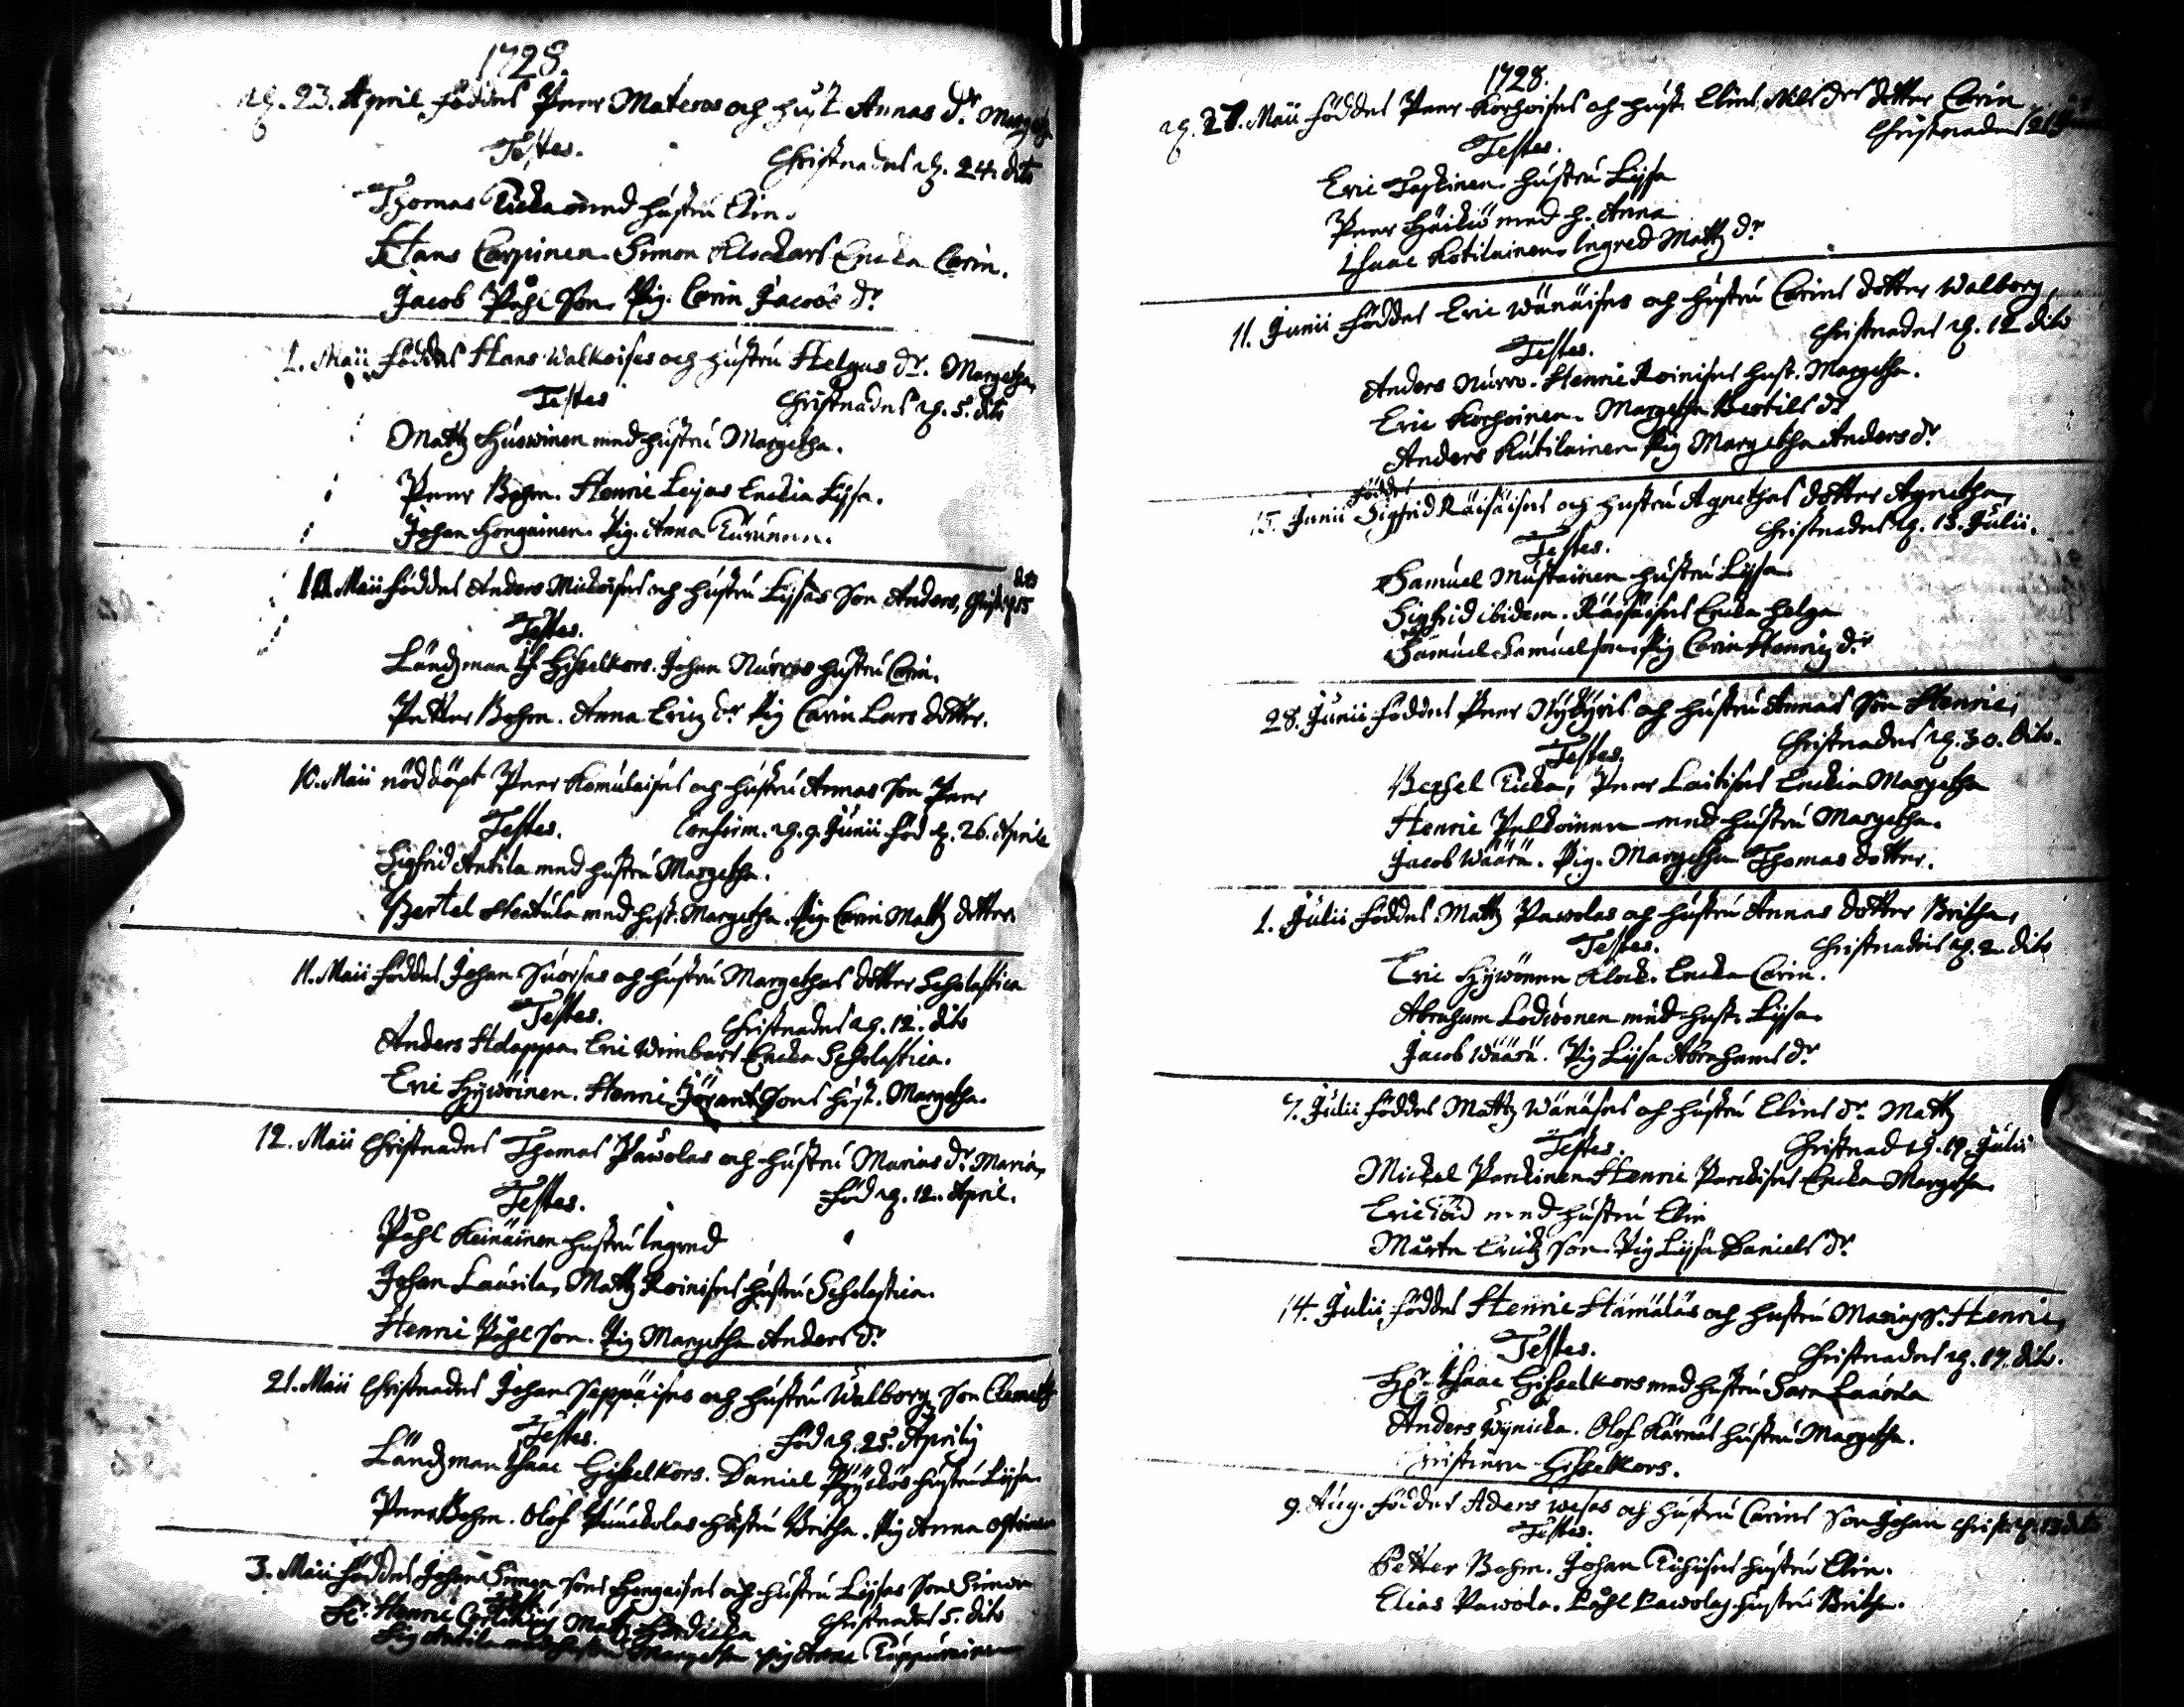 1728.
23. April föddes Peer Materos och hust. Annas dr. Margetha
Testes.
Christnades 24. dito
Thomas Ticka med hustru Elin.
Hans Carpinen. Simon Klockars Encka Carin.
Jacob Påhl Son. Pig. Carin Jacobs dr.
1. Maii föddes Hans Walkoises och hustru Helgas dr. Margetha,
Testes
Christnades 5. dito
Mattz Huowinen med hustru Margetha.
Peer Bohm. Henric Leijas Enckia Lijsa.
Johan Hongainen. Pig. Anna Turunen.
10. Maii föddes Anders Mickoises och hustru Lijsas Son Anders, Christ. 15 dito
Testes.
Ländzman Is. Hisselkors. Johan Nurros hustru Carin.
Petter Bohm. Anna Ericz dr Pig Carin Lars dotter.
10. Maii nöddöpt Peer Komulaises och hustru Annas Son Peer
Testes.
Confirm. 9. Junii föd 26. Aprile
Sigfrid Antila med hustru Margetha.
Bertel Heatula med hust. Margetha. Pig Carin Mattz dotter.
11. Maii föddes Johan Suorsas och hustru Margethas dotter Scholastica
Testes.
Christnades 12. dito
Anders Holappa. Eric Wimbars Encka Scholastica.
Eric Hijwöinen. Henric Jörans Sons hust. Margetha.
12. Maii Christnades Thomas Pawolas och hustru Marias dr. Maria,
Testes.
föd 12. April.
Påhl Keinäinen hustru Ingred
Johan Laurila, Mattz Roinises hustru Scholastica.
Henric Påhl Son. Pig Margetha Anders dr
21. Maii Christnades Johan Seppäises och hustru Walborg Son Clemet
Testes.
föd 25. Aprilij
Ländzman Isaac Hisselkors. Daniel Pyyckös hustru Lijsa.
Peer Bohm. Olof Puuckolas hustru Britha. Pig Anna
3. Maii föddes Johan Simon Sons Hongaises och hustru Lijsas Son Simon
Test.
Christnades 5. dito
Hr. Henric Mattz
Sig Antila med hustru Margetha pig Anna Tuppurainen
1728.
27. Maii föddes Peer Korhoises och hust. Elins, Nils drs dotter Carin
Christnades
Testes.
Eric Taskinen hustru Lijsa
Peer Häikiö med h. Anna
Isaac Kotilainen. Ingred Mattz dr
11. Junii föddes Eric Wänäises och hustru Carins dotter Walborg,
Testes.
Christnades 12 dito
Anders Nurro. Henric Roinises hust. Margetha.
Eric Korhoinen. Margetha Bertils dr
Anders Kutilainen Pig Margetha Anders dr
15. Junii föddes Sigfrid Räisäises och hustru Agnethas dotter Agnetha,
Testes.
Christnades 13. Julii.
Samuel Mustainen hustru Lijsa.
Sigfrid ibidem. Räisäises Encka Helga
Samuel Samuelson Pig Carin Henricz dr
28. Junii föddes Peer Nykyris och hustru Annas Son Henric,
Testes.
Christnades 30. dito.
Bertel Ticka, Peer Laitises Enckia Margetha
Henric Pelkoinen med hustru Margetha.
Jacob Wäärä. Pig. Margetha Thomas dotter.
1. Julii föddes Mattz Pawolas och hustru Annas dotter Britha,
Testes.
Christnades 2 dito
Eric Hijwöinen Klock. Encka Carin.
Abraham Lodwonen med hust. Lijsa.
Jacob Wäärä. Pig Lijsa Abrahams dr
7. Julii föddes Mattz Wänäses och hustru Elins dr. Mattz
Testes.
Christnad 19. Julii
Mickel Parckinen Henric Parckises Encka Margetha.
Eric ibid med hustru Elin
Mårten Erickz Son. Pig Lijsa Daniels dr
14. Julii föddes Henric Hämäläs och hustru Marias S. Henric,
Testes.
Christnades 17. dito.
Hr. Isaac Hisselkors med hustru Sara
Anders Wynicka. Olof Kärnäs hustru Margetha.
Christiern Hisselkors.
9. Aug. föddes Aders Wesas och hustru Carins Son Johan Christ. 13 dito
Testes.
Petter Bohm. Johan Tihises hustru Elin.
Elias Pawola. Påhl Pawolas hustru Britha.